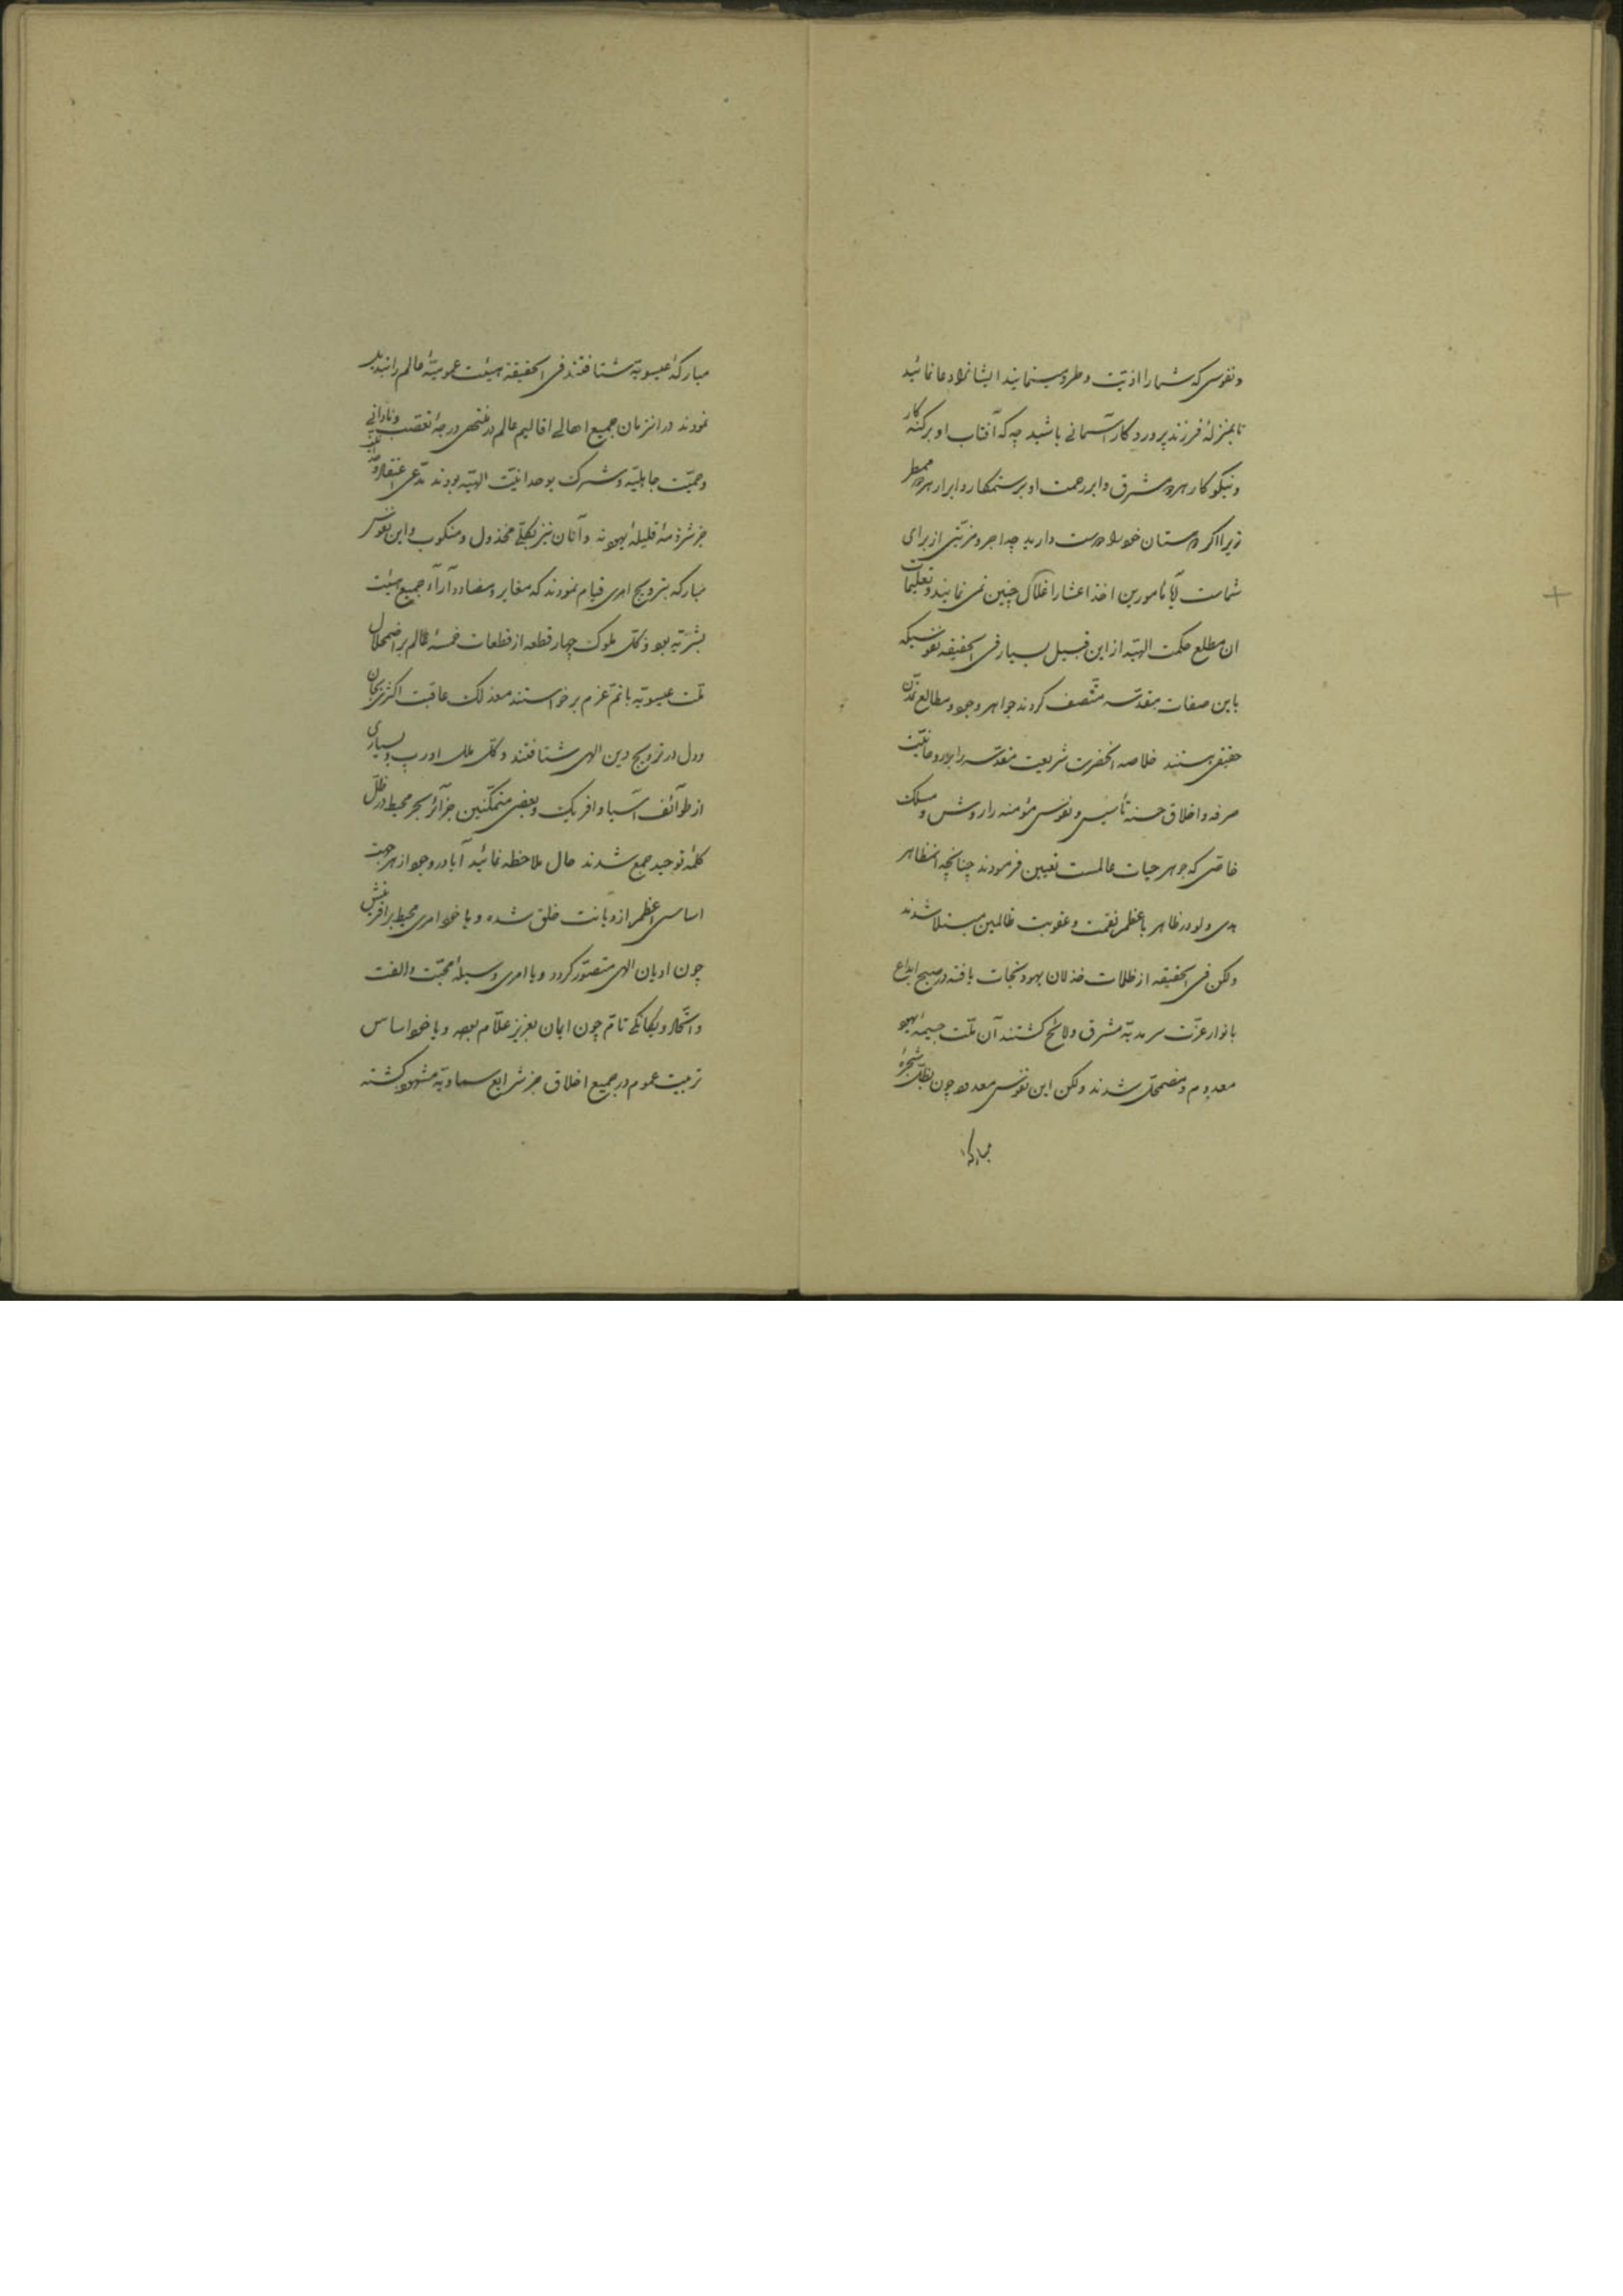 و نفوسی که شما را اذیت و طرد مینمایند ایشانرا دعا نمائید
تا بمنزلهٔ فرزند پروردگار آسمانی باشید چه که آفتاب او بر گنه کار
و نیکوکار هر دو مشرق و ابر رحمت او بر ستمکار و ابرار هر دو ممطر
زیرا اگر دوستان خود را دوست دارید چه اجر و مزیتی از برای
شماست آیا مامورین اخذ اعشار اغلاک چنین نمی نمایند و تعلیمات
ان مطلع حکمت الهیّه از این قبیل بسیار فی الحقیقه نفوسیکه
باین صفات مقدسه متّصف گردند جواهر وجود و مطالع تمدّن
حقیقی هستند خلاصه انحضرت شریعت مقدّسه را بر روحانیّت
صرفه و اخلاق حسنه تأسیس و نفوس مؤمنه را روش و مسلک
خاصّی که جوهر حیات عالمست تعیین فرمودند چنانچه انمظاهر
هدی ولو در ظاهر باعظم نقمت و عقوبت ظالمین مبتلا شدند
ولکن فی الحقیقه از ظلمات خذلان یهود نجات یافته در صبح ابداع
بانوار عزّت سرمدیّه مشرق و لائح گشتند آن ملّت جسیمهٔ یهود
معدوم و مضمحل شدند ولکن این نفوس معدوده چون بظلّ شجرهٔ
مبارکهٔ
مبارکهٔ عیسویّه شتافتند فی الحقیقة هیئت عمومیّهٔ عالم را تبدیل
نمودند در انزمان جمیع اهالی اقالیم عالم در منتهی درجهٔ تعصّب و نادانی
و حمیّت جاهلیّه و شرک بوحدانیّت الهیّه بودند مدّعی اعتقاد وحدانیّت
جز شرذمهٔ قلیلهٔ یهود نه و آنان نیز بکلّی مخذول و منکوب و این نفوس
مبارکه بترویج امری قیام نمودند که مغایر و مضاد و آراء جمیع هیئت
بشریّه بود و کل ملوک چهار قطعه از قطعات خمسهٔ عالم بر اضمحلال
ملّت عیسویّه باتمّ عزم برخواستند معذلک عاقبت اکثر بجان
و دل در ترویج دین الهی شتافتند و کلّ ملل اورپ و بسیاری
از طوآئف آسیا و افریک و بعضی متمکّنین جزآئر بحر محیط در ظلّ
کلمهٔ توحید جمع شدند حال ملاحظه نمائید آیا در وجود از هر جهت
اساسی اعظم از دیانت خلق شده و یا خود امری محیط بر آفرینش
چون ادیان الهی متصّور گردد و یا امری وسیلهٔ محبّت و الفت
و اتّحاد و یگانگی تامّ چون ایمان بعزیز علّام بوده و یا خود اساس
تربیت عموم در جمیع اخلاق جز شرایع سماویّه مشهود گشته